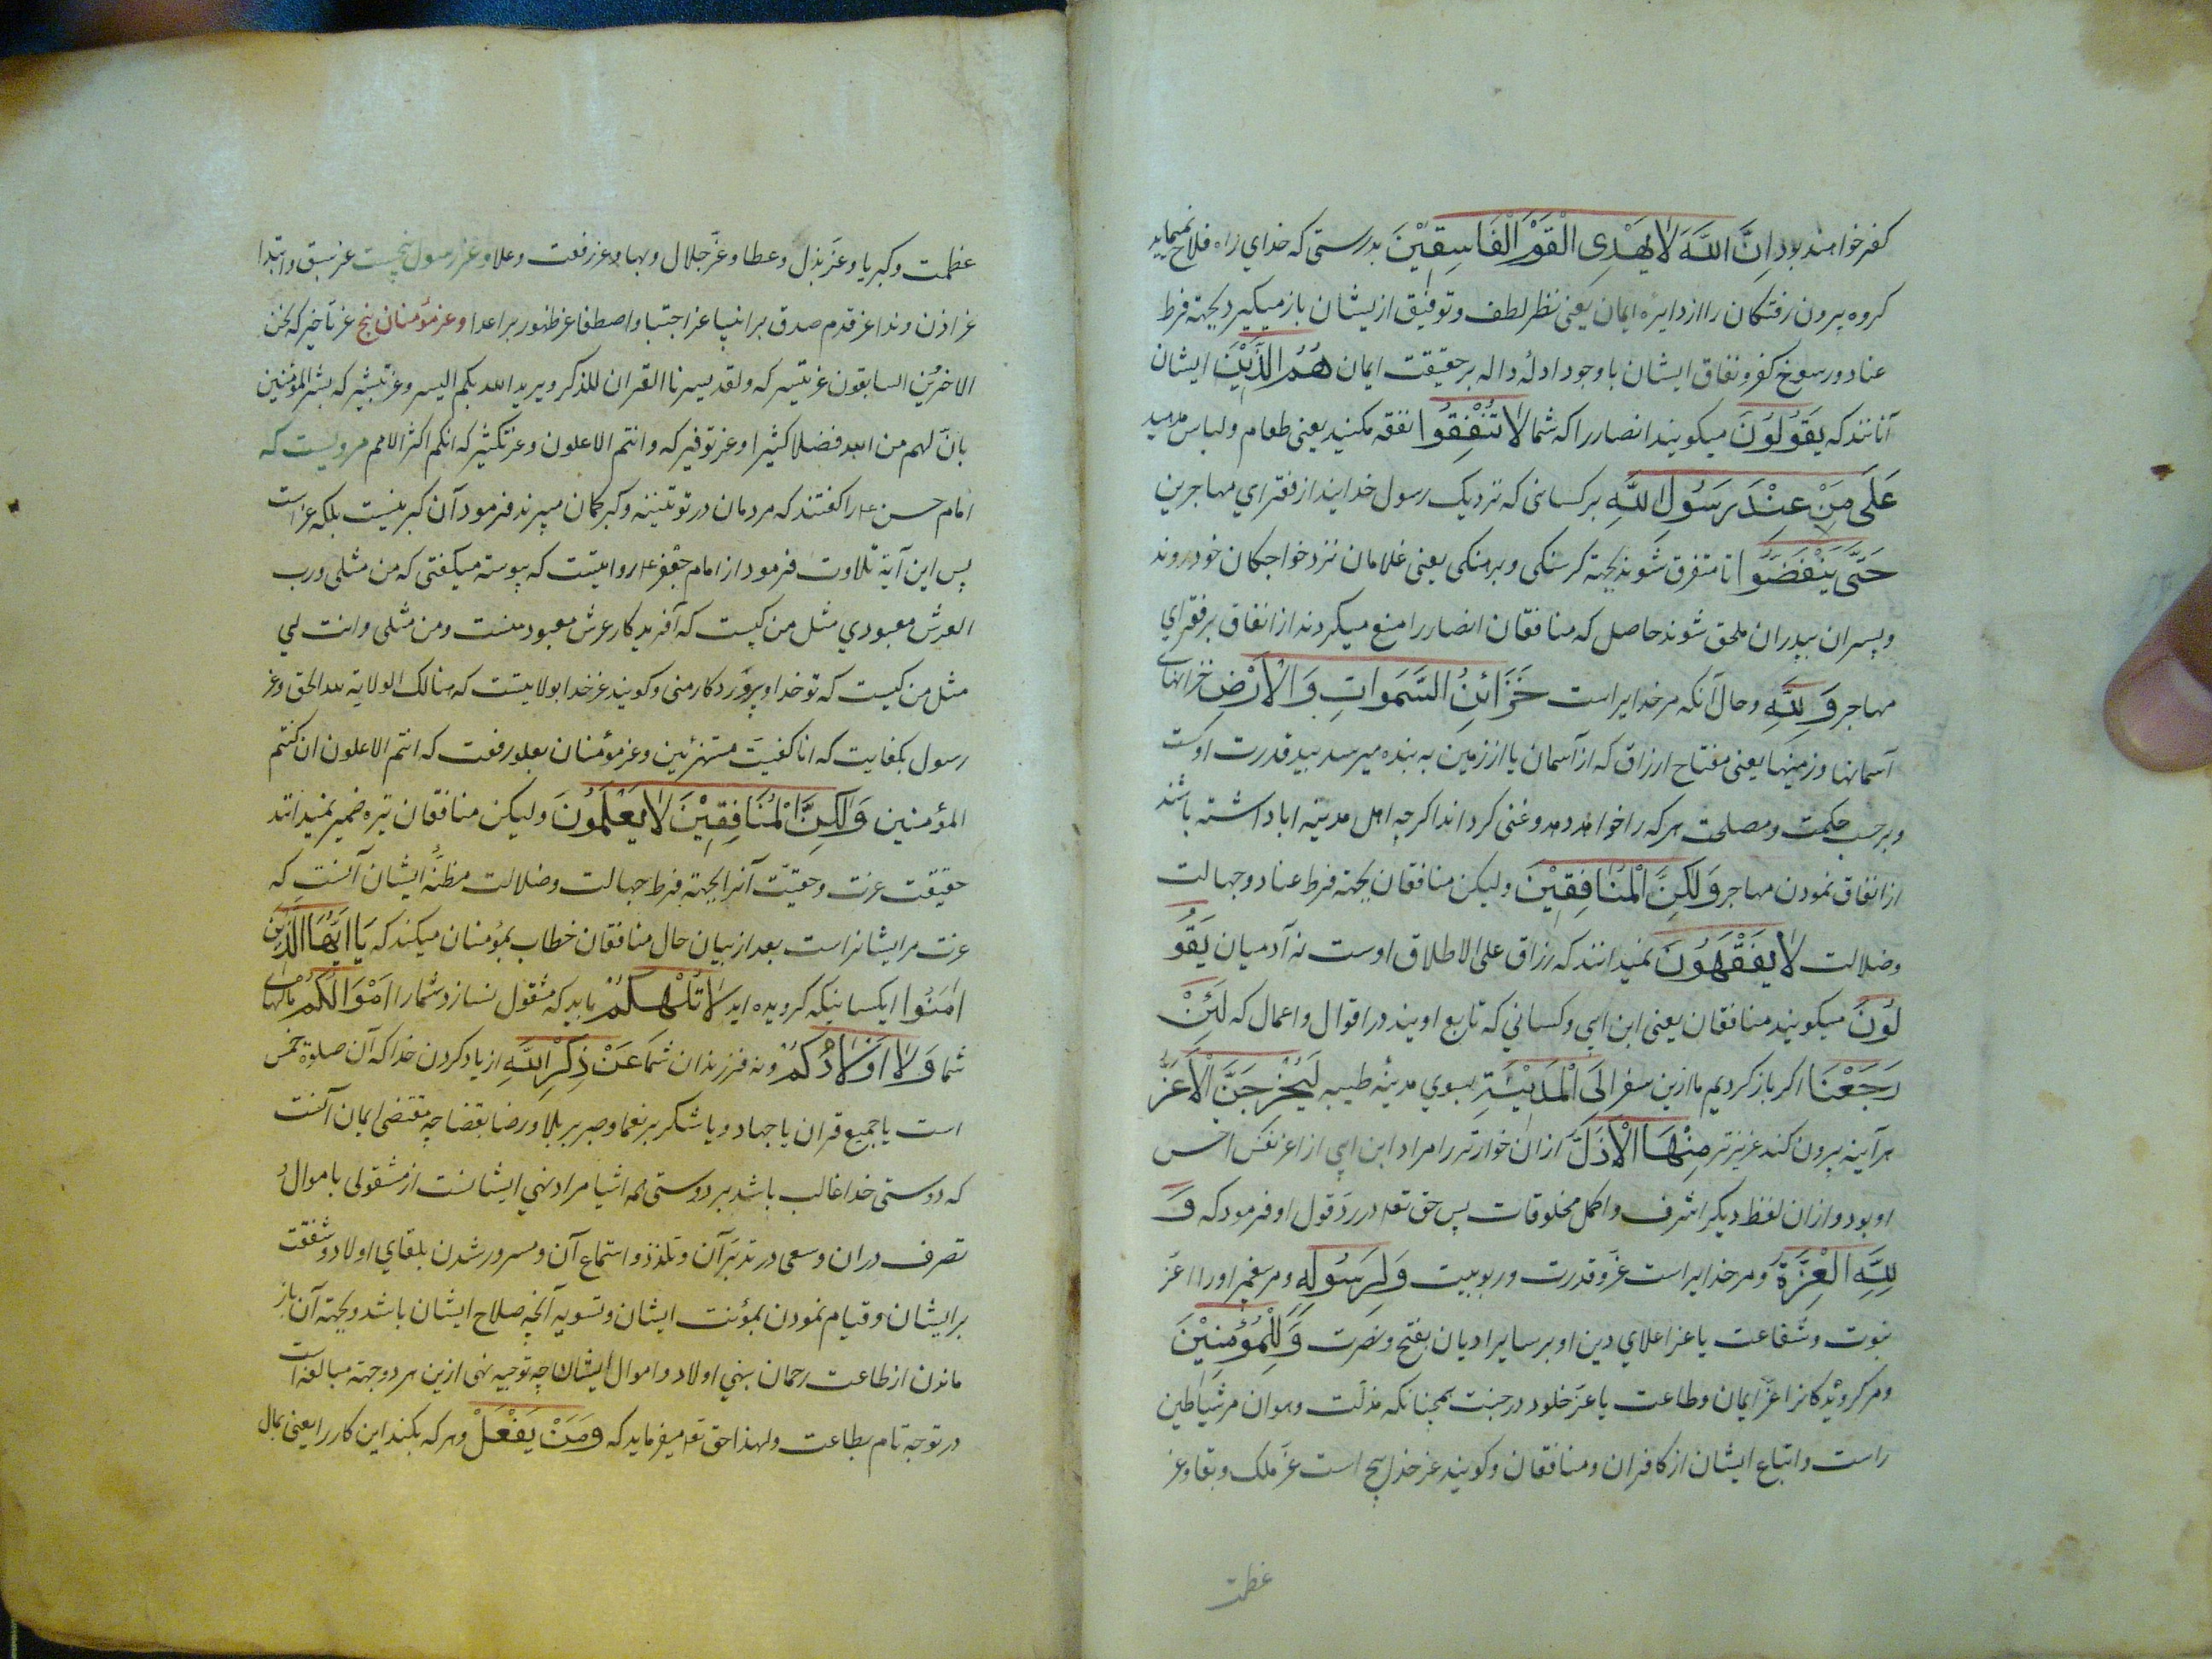 کفر خواهند بود اِنَّ اللّهَ لا یَهْدِی الْقَوْمَ الْفَاسِقِیْنَ بدرستی که خدای راه فلاح نمینماید
کروه بیرون رفتکان را از دایره ایمان یعنی نظر لطف و توفیق از یشان باز میکیرد بجهته فرط
عناد و رسوخ کفر و نفاق ایشان با وجود ادله داله بر حقیقت ایمان هُمُ الَّذِیْنَ ایشان
آنانند که یَقُولُوْنَ میکویند انصار را که شما لَا تُنْفِقُوا نفقه مکنید یعنی طعام و لباس مدهید
عَلَی مَنْ عِنْدَ رَسُولِ اللَّهِ بر کسانی که نزدیک رسول خدایند از فقرای مهاجرین
حَتَّی یَنْفَضُّوا تا متفرق شوند بجهته کرسنکی و برهنکی یعنی غلامان نزد خواجکان خود روند
و پسران بپدران ملحق شوند حاصل که منافقان انصار را منع میکردند از انفاق بر فقرای
مهاجر وَ لِلَّهِ و حال آنکه مر خدایراست خَزَائِنُ السَّمَواتِ وَ الْاَرْضِ خزانهای
آسمانها و زمینها یعنی مفتاح ارزاق که از آسمان یا از زمین به بنده میرسد بید قدرت اوست
و بر حسب حکمت و مصلحت هر که را خواهد دهد و غنی کرداند اکر چه اهل مدینه ابا داشته باشند
از انفاق نمودن مهاجر وَلَکِنَّ الْمُنَافِقِیْنَ و لیکن منافقان بجهته فرط عناد و جهالت
و ضلالت لا یَفْقَهُونَ نمیدانند که رزاق علی الاطلاق اوست نه آدمیان یَقُو
لُوْنَ میکویند منافقان یعنی ابن ابی و کسانی که تابع اویند در اقوال و اعمال که لَئِنْ
رَجَعْنَا اکر باز کردیم ما ازین سفر اِلَی الْمَدِیْنَةِ بسوی مدینه طیبه لَیُخْرِجَنَّ الْاَعَزُّ
هر آینه بیرون کند عزیزتر مِنْهَا الْاَذَلَّ از ان خوارتر را مراد ابن ابی از اعز نفس اخس
او بود و از ان لفظ دیکر اشرف و اکمل مخلوقات پس حق تعه در رد قول او فرمود که وَ
لِلَّهِ الْعِزَّةُ و مر خدایراست عز و قدرت و ربوبیت وَ لِرَسُولِهِ و مر پیغمبر او را عز
نبوت و شفاعت یا عز اعلای دین او بر سایر ادیان بفتح و نصرت وَ لِلْمُؤْمِنِیْنَ
و مر کرویدکانرا عز ایمان و طاعت یا عز خلود در جنت همچنانکه مذلت و هوان مر شیاطین
راست و اتباع ایشان از کافران و منافقان و کویند عز خدا پنج است عز ملک و بقا و عز
عظمت
عظمت و کبریا و عز بذل و عطا و عز جلال و بها و عز رفعت و علا و عز رسول پنجست عز سبق و ابتدا
عز اذن و ندا عز قدم صدق بر انبیا عز اجتبا و اصطفا عز ظهور بر اعدا و عز مؤمنان پنج عز تأخیر که نحن
الاخرین السابقون عز تیسیر که ولقد یسرنا القران للذکر و یرید الله بکم الیسر و عز تبشیر که بشر المؤمنین
بانّ لهم من الله فضلا کثیرا و عز توقیر که و انتم الاعلون و عز تکثیر که انکم اکثر الامم مرویست که
امام حسن ع را کفتند که مردمان در تو تبختر و کبر کمان میبرند فرمود آن کبر نیست بلکه عزاست
پس این آیة تلاوت فرمود از امام جعفر ع روایتست که پیوسته میکفتی که من مثلی و رب
العرش معبودی مثل من کیست که آفریدکار عرش معبود منست و من مثلی و انت لی
مثل من کیست که تو خدا و پروردکار منی و کویند عز خدا بولایتست که هنالک الولایة لله الحق و عز
رسول بکفایت که انا کفیناک مستهزئین و عز مؤمنان بعلو رفعت که انتم الاعلون ان کنتم
المؤمنین وَلَکِنَّ الْمُنَافِقِیْنَ لَا یَعْلَمُونَ و لیکن منافقان تیره ضمیر نمیدانند
حقیقت عزت و حقیّت آنرا بجهته فرط جهالت و ضلالت مظنّه ایشان آنست که
عزت مر ایشانراست بعد از بیان حال منافقان خطاب بمؤمنان میکند که یَا اَیُّهَا الَّذِیْنَ
اٰمَنُوا ایکسانیکه کرویده اید لَا تُلْهِکُمْ باید که مشغول نسازد شما را اَمْوَالُکُمْ مالهای
شما وَ لَا اَوْلَادُکُمْ و نه فرزندان شما عَنْ ذِکْرِ اللَّهِ از یاد کردن خدا که آن صلوة خمس
است یا جمیع قران یا جهاد و یا شکر بر نعما و صبر بر بلا و رضا بقضا چه مقتضی ایمان آنست
که دوستی خدا غالب باشد بر دوستی همه اشیا مراد نهی ایشانست از مشغولی باموال و
تصرف در ان و سعی در تدبر آن و تلذذ و استماع آن و مسرور شدن بلقای اولاد و شفقت
بر ایشان و قیام نمودن بمؤنت ایشان و تسویه آنچه صلاح ایشان باشد و بجهته آن باز
ماندن از طاعت رحمان بنهی اولاد و اموال ایشان چه توجیه نهی ازین هر دو جهته مبالغه است
در توجه تام بطاعت و لهذا حق تعه میفرماید که وَمَنْ یَفْعَلْ و هر که بکند این کار را یعنی بمال